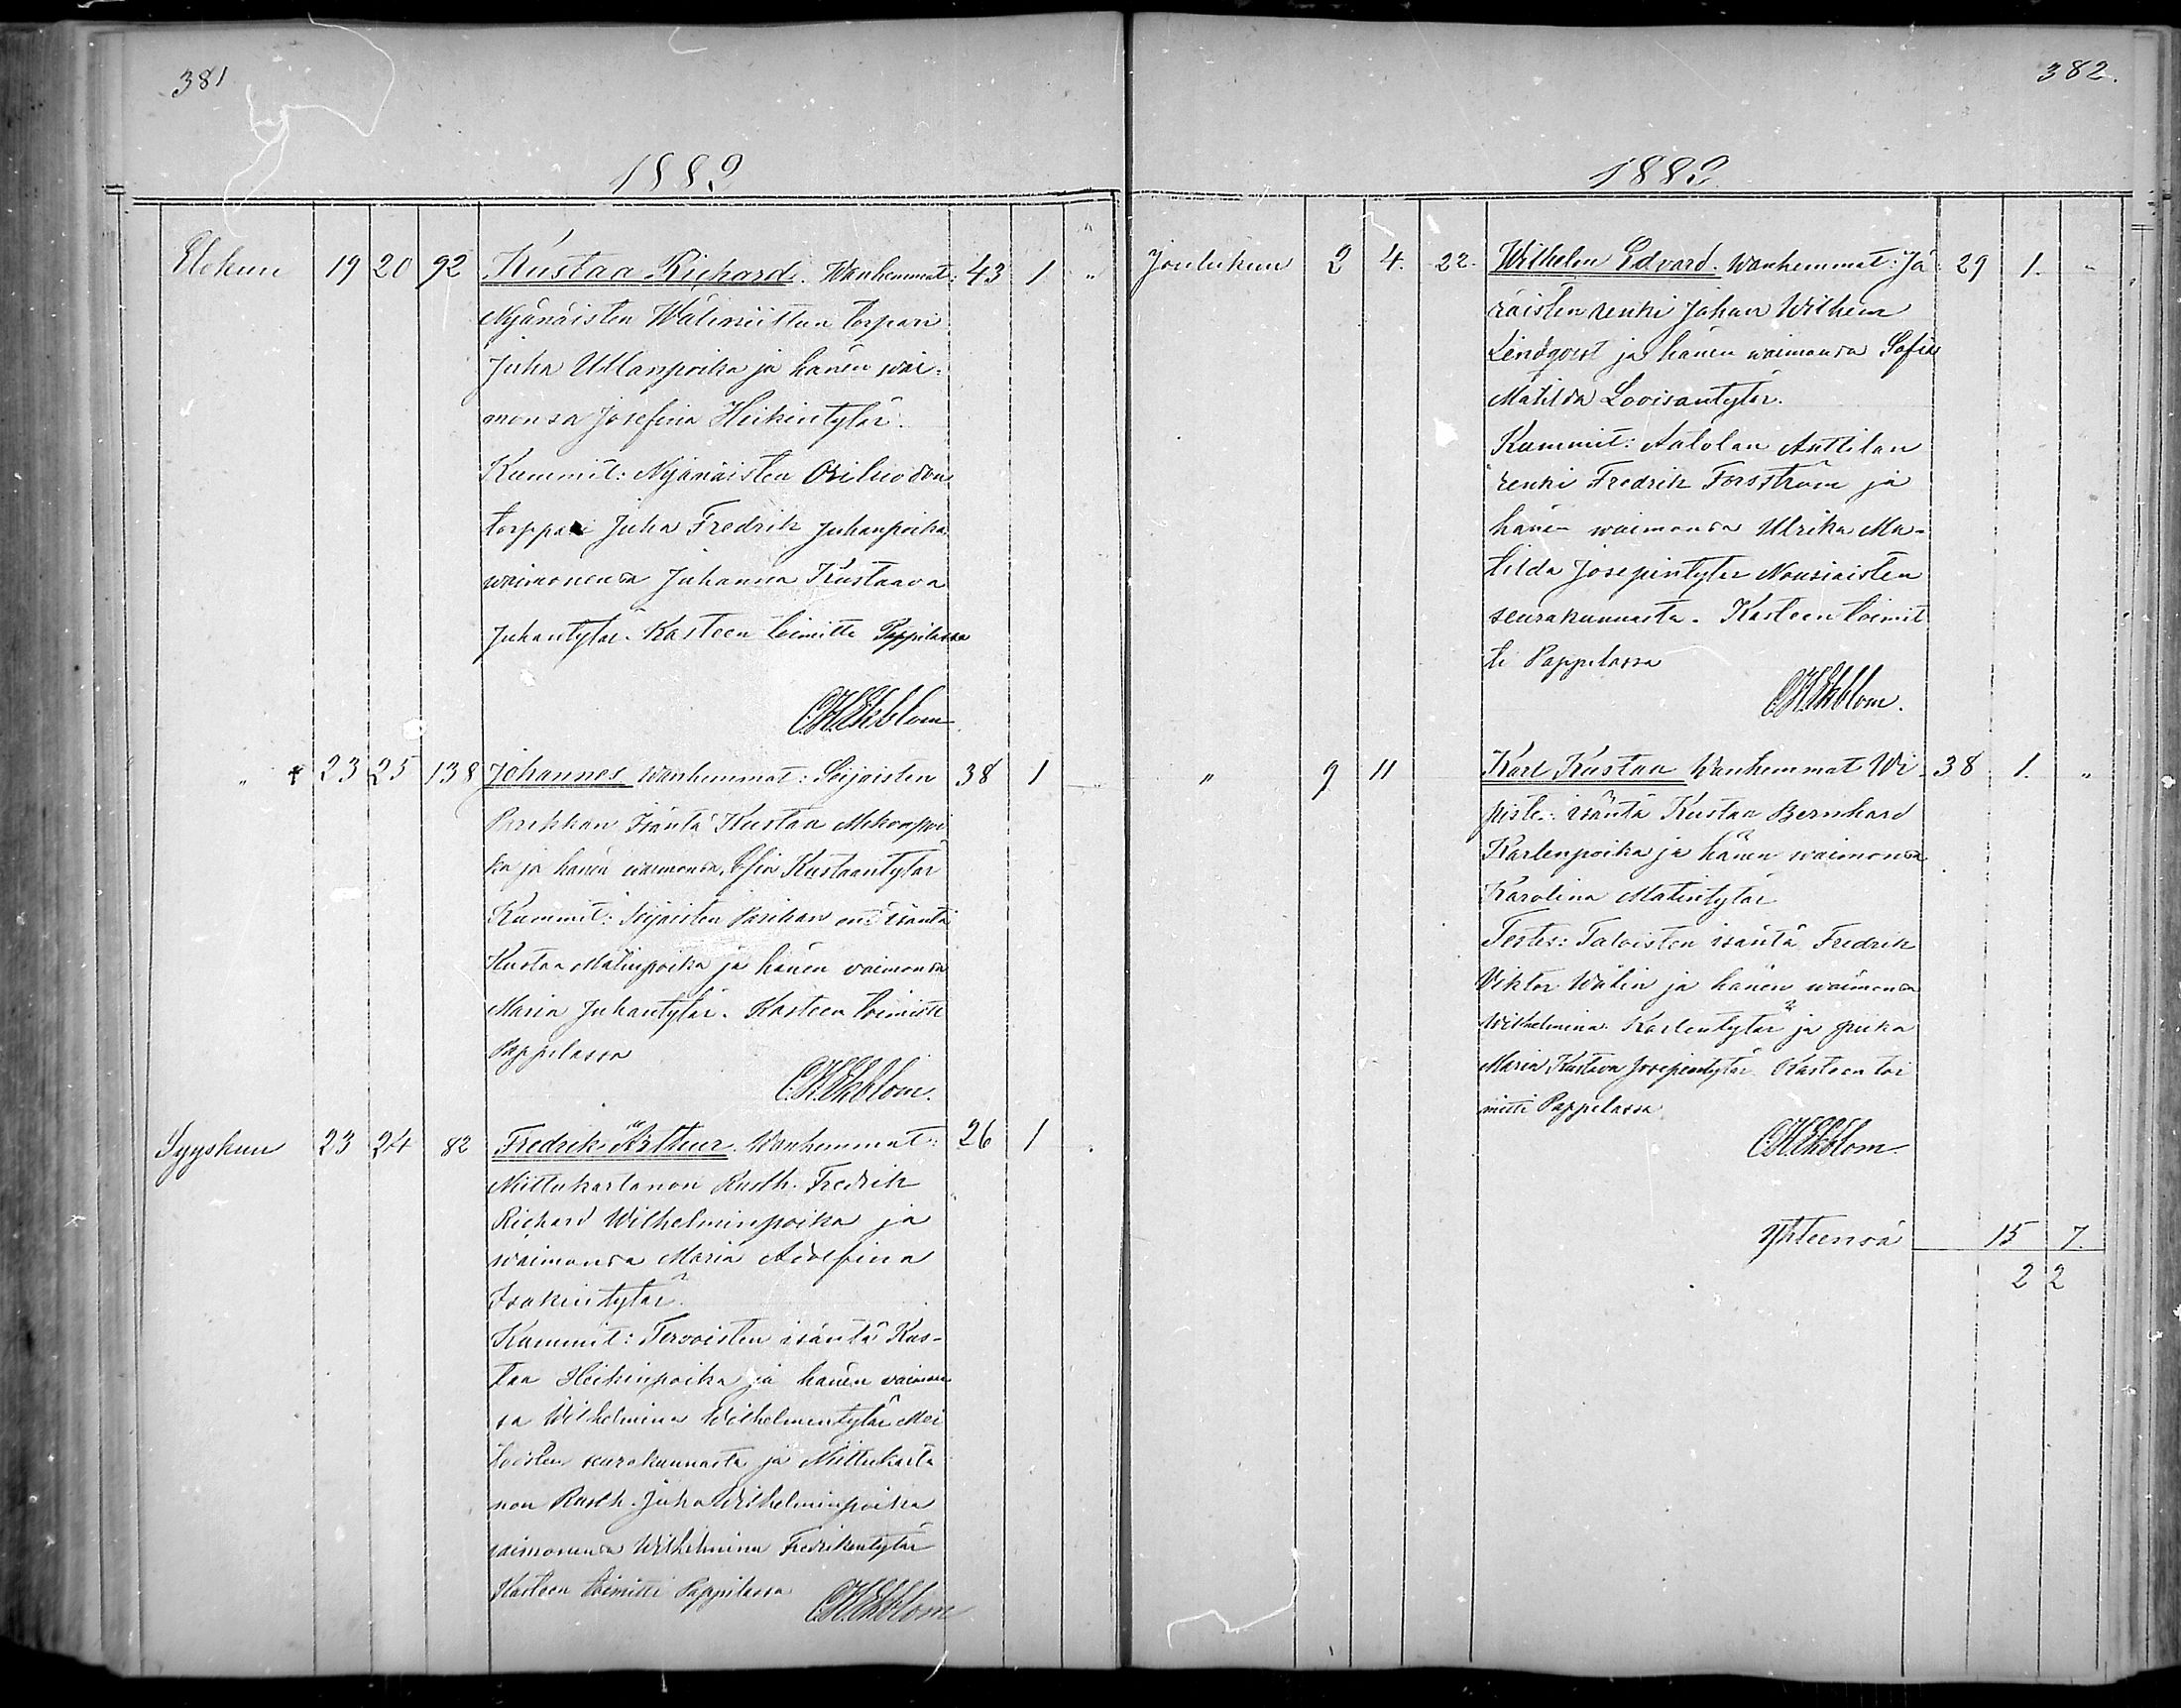 381
1883
Elokuu 19 20 92 Kustaa Richard. Wanhemmat: 43 1 "
Nyänäisten Wäliniittun torpari
Juha Ullanpoika ja hänen wai-
monsa Josefina Heikintytär.
Kummit: Nyänäisten Oriluodon
torppari Juha Fredrik Juhanpoika,
waimonensa Juhanna Kustaava
Juhantytär. Kasteen toimitti Pappilassa
C.H.Ekblom
" + 23 25 138 Johannes Wanhemmat: Soijoisten 38 1 "
Parikkan Isäntä Kustaa
ka ja hänen waimonsa Kustaantytär
Kummit: Parikan ent. isäntä
Kustaa Matinpoika ja hänen vaimonsa
Maria Juhantytär. Kasteen toimitti
Pappilassa
C.H.Ekblom.
Syyskuu 23 24 82 Fredrik Arthur. Wanhemmat: 26 1 "
Niittukartanon Rusth. Fredrik
Richard Wilhelminpoika ja
waimonsa Maria Adolfina
Isakintytär.
Kummit: Tervoisten isäntä Kus-
taa Heikinpoika ja hänen vaimon
sa Wilhelmina Wilhelmintytär
seurakunnasta ja Niittukarta
non Rusth. Juha Wilhelminpoika
vaimonensa Wilhelmina Fredrikintytär
Kasteen toimitti Pappilassa C.H.Ekblom
382.
1883
Joulukuu 2 4. 22. Wilhelm Edvard. Wanhemmat: Jä 29 1. "
räisten renki Johan Wilhem
Lindqvist ja hänen waimonsa Sofia
Matilda Lovisantytär.
Kummit: Aalolan Anttilan
renki Fredrik Forsström ja
hänen waimonsa Ulrika Ma-
tilda Josepintytär Nousiaisten
seurakunnasta. Kasteen toimit
ti Pappilassa
C.H.Ekblom.
" 9 11 Karl Kustaa Wanhemmat 38 1. "
isäntä Kustaa Bernhard
Karlenpoika ja hänen waimonsa
Karolina Matintytär
Testes: Taloisten isäntä Fredrik
Viktor Wälin ja hänen waimonsa
Wilhelmina Karlentytär ja piika
Maria Kustava Josepintytär Kasteen toi
mitti Pappilassa
C.H.Ekblom.
Yhteensä 15 7.
22